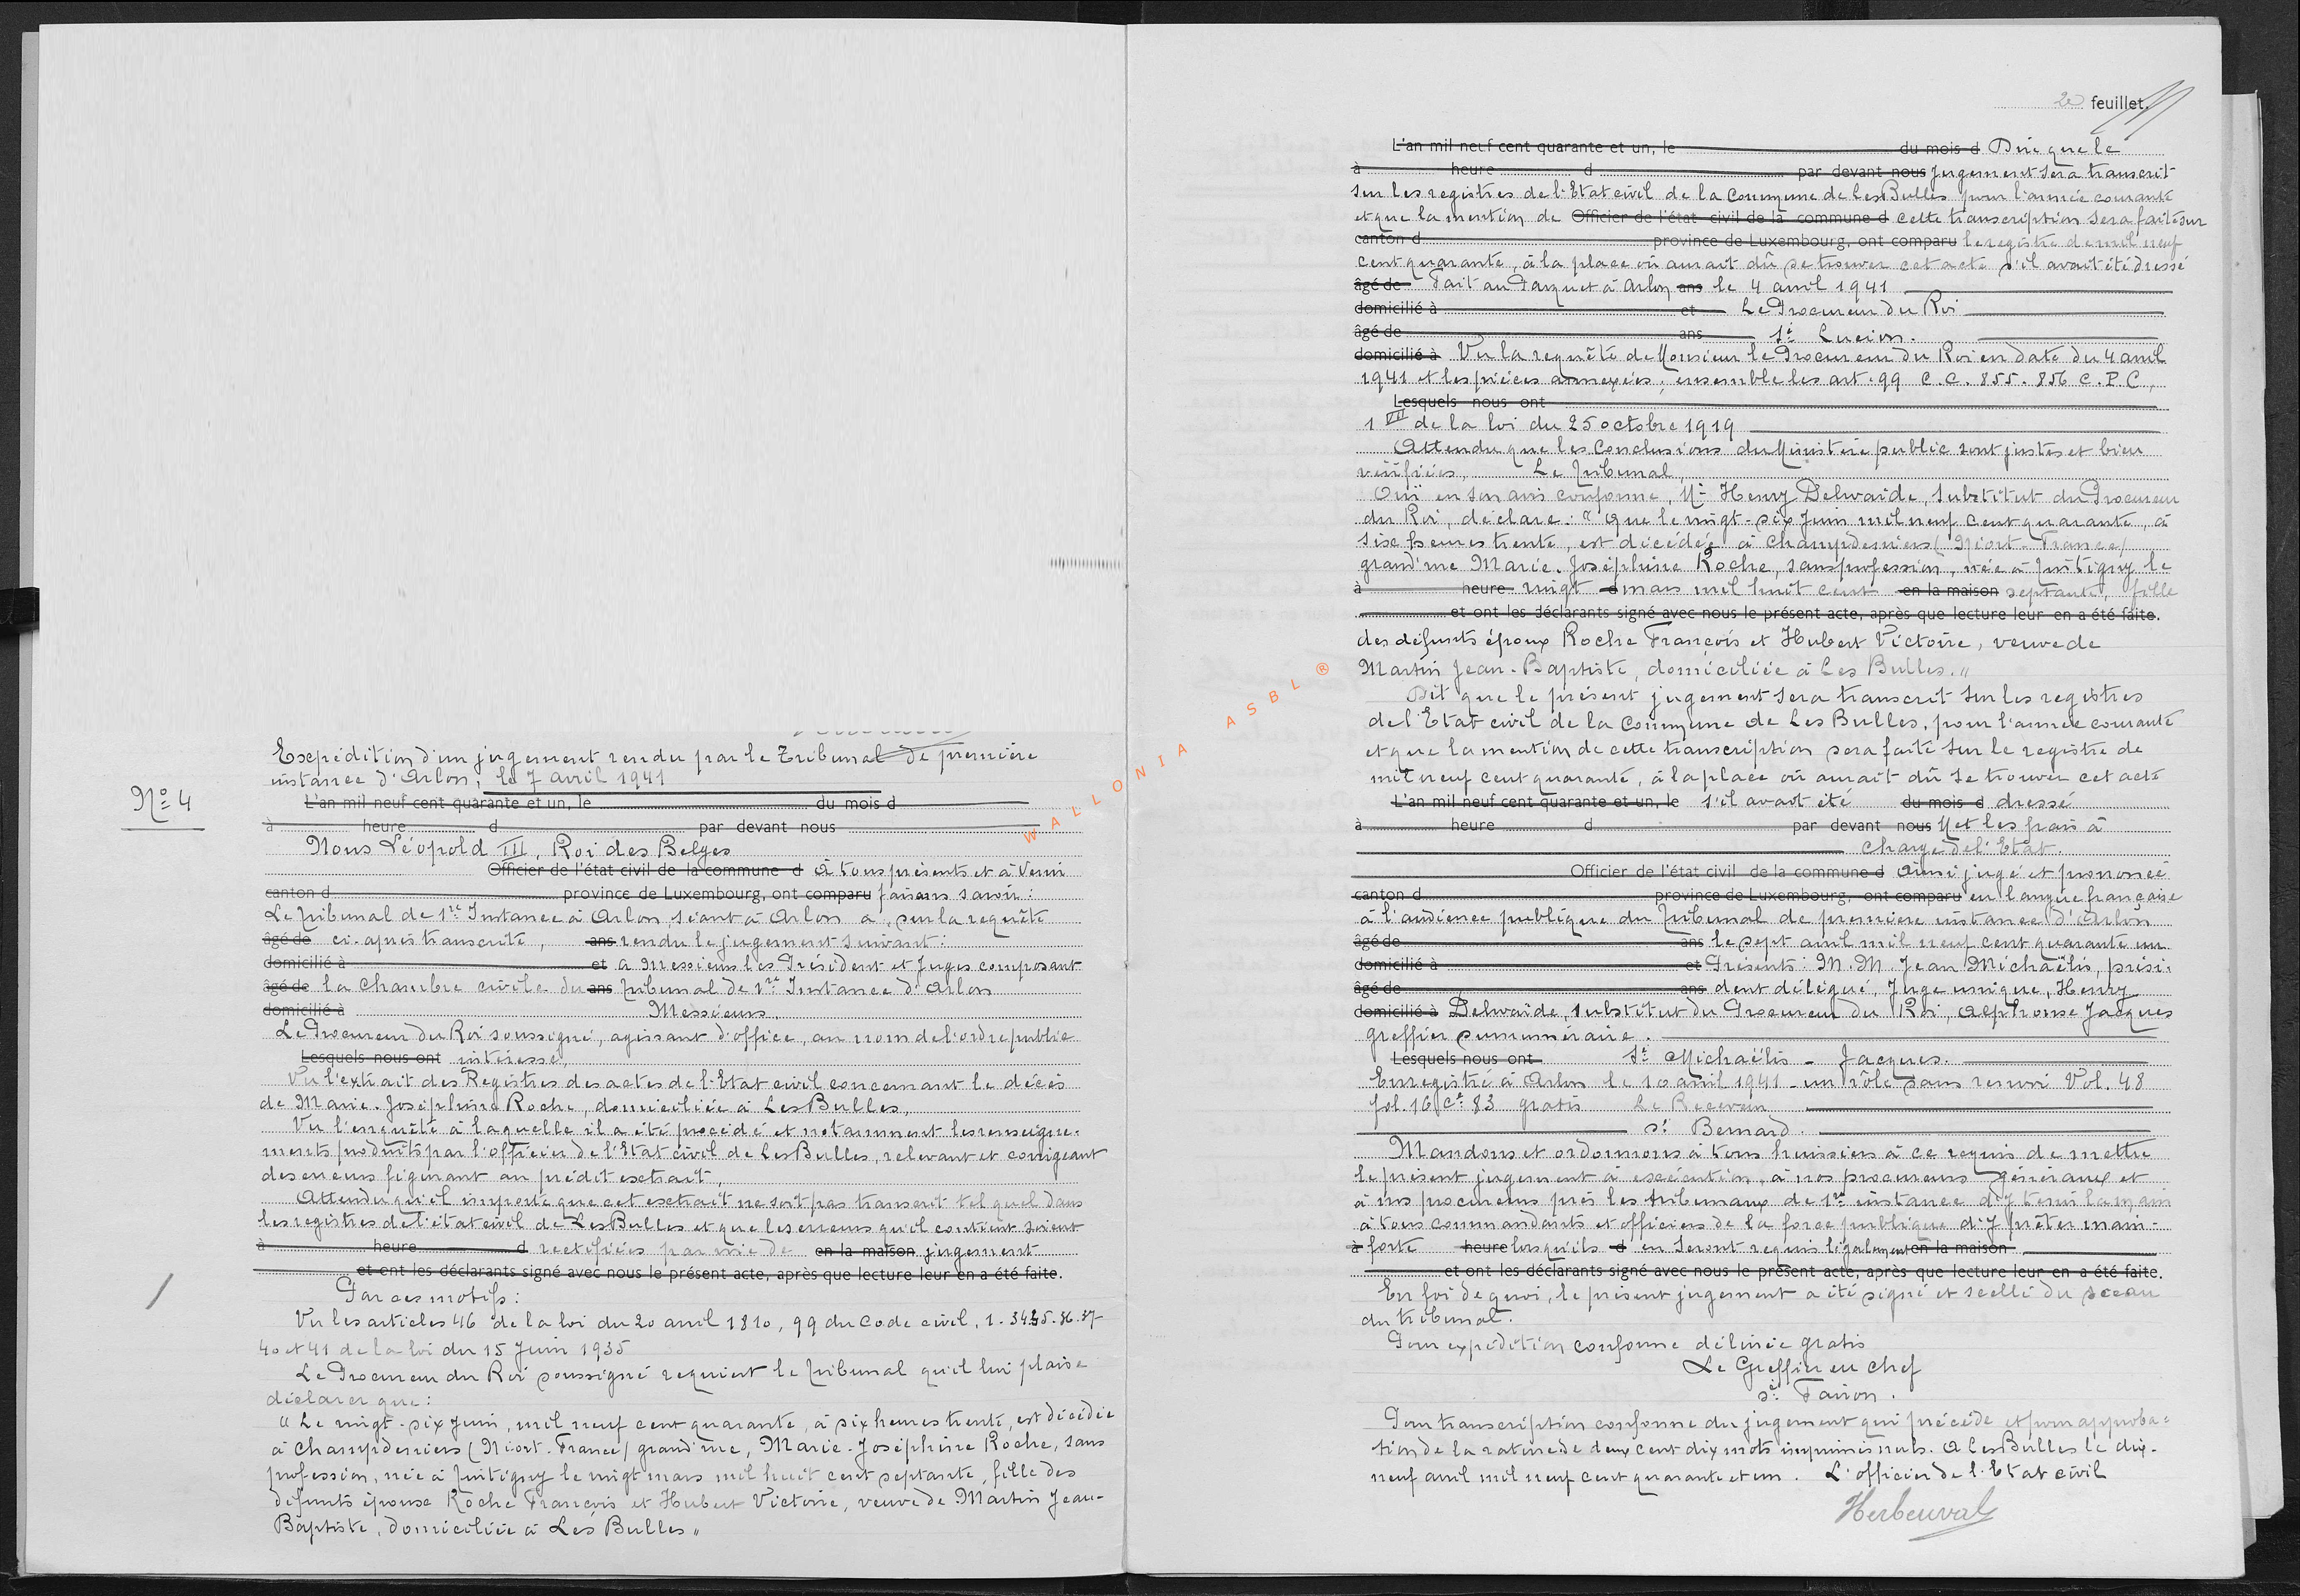 Expédition d'un jugement rendu par le Tribunal de première
instance d'Arlon, le 7 avril 1941
No 4
L'an mil neuf cent quarante et un, le du mois d
à heure d par devant nous
Nous Léopold III, Roi des Belges
Officier de l'état civil de la commune d A tous présents et à venir
canton d province de Luxembourg, ont comparu faisons savoir :
Le Tribunal de 1re Instance à Arlon, séant à Arlon a, sur la requête
âgé de ci-après transcrite, ans rendu le jugement suivant :
domicilié à et A Messieurs les Président et Juges composant
âgé de la Chambre civile du ans Tribunal de 1re Instance d'Arlon
domicilié à Messieurs,
Le Procureur du Roi soussigné, agissant d'office, au nom de l'ordre public
Lesquels nous ont intéressé,
Vu l'extrait des Registres des actes de l'Etat civil concernant le décès
de Marie-Joséphine Roche, domiciliée à Les Bulles,
Vu l'enquête à laquelle il a été procédé et notamment les renseigne-
ments produits par l'officier de l'Etat civil de Les Bulles, relevant et corrigeant
des erreurs figurant au prédit extrait,
Attendu qu'il importe que cet extrait ne soit pas transcrit tel quel dans
les registres de l'état civil de Les Bulles et que les erreurs qu'il contient soient
à heure d rectifiées par voie de en la maison jugement
et ont les déclarants signé avec nous le présent acte, après que lecture leur en a été faite.
Par ces motifs :
Vu les articles 46 de la loi du 20 avril 1810, 99 du Code civil, 1. 34.35.36.37
40 et 41 de la loi du 15 Juin 1935
Le Procureur du Roi soussigné requiert le Tribunal qu'il lui plaise
déclarer que :
"Le vingt-six Juin, mil neuf cent quarante, à six heures trente, est décédée
à Champdeniers (Niort-France) grand'rue, Marie-Joséphine Roche, sans
profession, née à Jintigny le vingt mars mil huit cent septante, fille des
défunts époux Roche François et Hubert Victoire, veuve de Martin Jean-
Baptiste, domiciliée à Les Bulles"
2e feuillet.
L'an mil neuf cent quarante et un, le du mois d Dire que le
à heure d par devant nous jugement sera transcrit
sur les registres de l'Etat civil de la Commune de Les Bulles pour l'année courante
et que la mention de Officier de l'état civil de la commune d cette transcription sera faite sur
canton d province de Luxembourg, ont comparu le registre de mil neuf
cent quarante, à la place où aurait dû se trouver cet acte s'il avait été dressé
âgé de Fait au Parquet à Arlon ans le 4 avril 1941
domicilié à et Le Procureur du Roi
âgé de ans Sé Lucion.
domicilié à Vu la requête de Monsieur le Procureur du Roi en date du 4 avril
1941 et les pièces annexées ; ensemble les art. 99 C.C. 855. 856 C.P.C,
Lesquels nous ont
1 VII de la loi du 25 octobre 1919
Attendu que les Conclusions du Ministère public sont justes et bien
vérifiées, Le Tribunal,
Ouï en son avis conforme, Mr Henry Delwaide, Substitut du Procureur
du Roi, déclare : "Que le vingt-six Juin mil neuf cent quarante, à
six heures trente, est décédée à Champdeniers (Niort-France)
grand'rue Marie-Joséphine Roche, sans profession, née à Jintigny le
à heure vingt d mars mil huit cent en la maison septante, fille
et ont les déclarants signé avec nous le présent acte, après que lecture leur en a été faite.
des défunts époux Roche François et Hubert Victoire, veuve de
Martin Jean-Baptiste, domiciliée à Les Bulles."
Dit que le présent jugement sera transcrit sur les registres
de l'Etat civil de la Commune de Les Bulles, pour l'année courante
et que la mention de cette transcription sera faite sur le registre de
mil neuf cent quarante, à la place où aurait dû se trouver cet acte
L'an mil neuf cent quarante et un, le s'il avait été du mois d dressé
à heure d par devant nous Met les frais à
Charge de l'Etat.
Officier de l'état civil de la commune d Ainsi jugé et prononcé
canton d province de Luxembourg, ont comparu en langue française
à l'audience publique du Tribunal de première instance d'Arlon
âgé de ans le sept avril mil neuf cent quarante un
domicilié à et Présents : M.M. Jean Michaëlis, prési-
âgé de ans dent délégué, Juge unique, Henry
domicilié à Delwaide, Substitut du Procureur du Roi, Alphonse Jacques
greffier surnuméraire.
Lesquels nous ont Sé Michaëlis - Jacques.
Enregistré à Arlon le 10 avril 1941 - un rôle sans renvoi Vol. 48
fol. 16 Ce 83 gratis Le Receveur
sé Bernard.
Mandons et ordonnons à tous huissiers à ce requis de mettre
le présent jugement à exécution, à nos procureurs généraux et
à nos procureurs près les tribunaux de 1re instance d'y tenir la main
à tous commandants et officiers de la force publique d'y prêter main-
à forte heure lorsqu'ils d en seront requis légalement en la maison
et ont les déclarants signé avec nous le présent acte, après que lecture leur en a été faite.
En foi de quoi, le présent jugement a été signé et scellé du sceau
du tribunal.
Pour expédition conforme délivrée gratis
Le Greffier en chef
sé Farion.
Pour transcription conforme du jugement qui précède et pour approba-
tion de la rature de deux cent dix mots imprimés nuls. A Les Bulles le dix-
neuf avril mil neuf cent quarante et un. L'officier de l'Etat civil
Herbeuval
WALLONIA ASBL ®